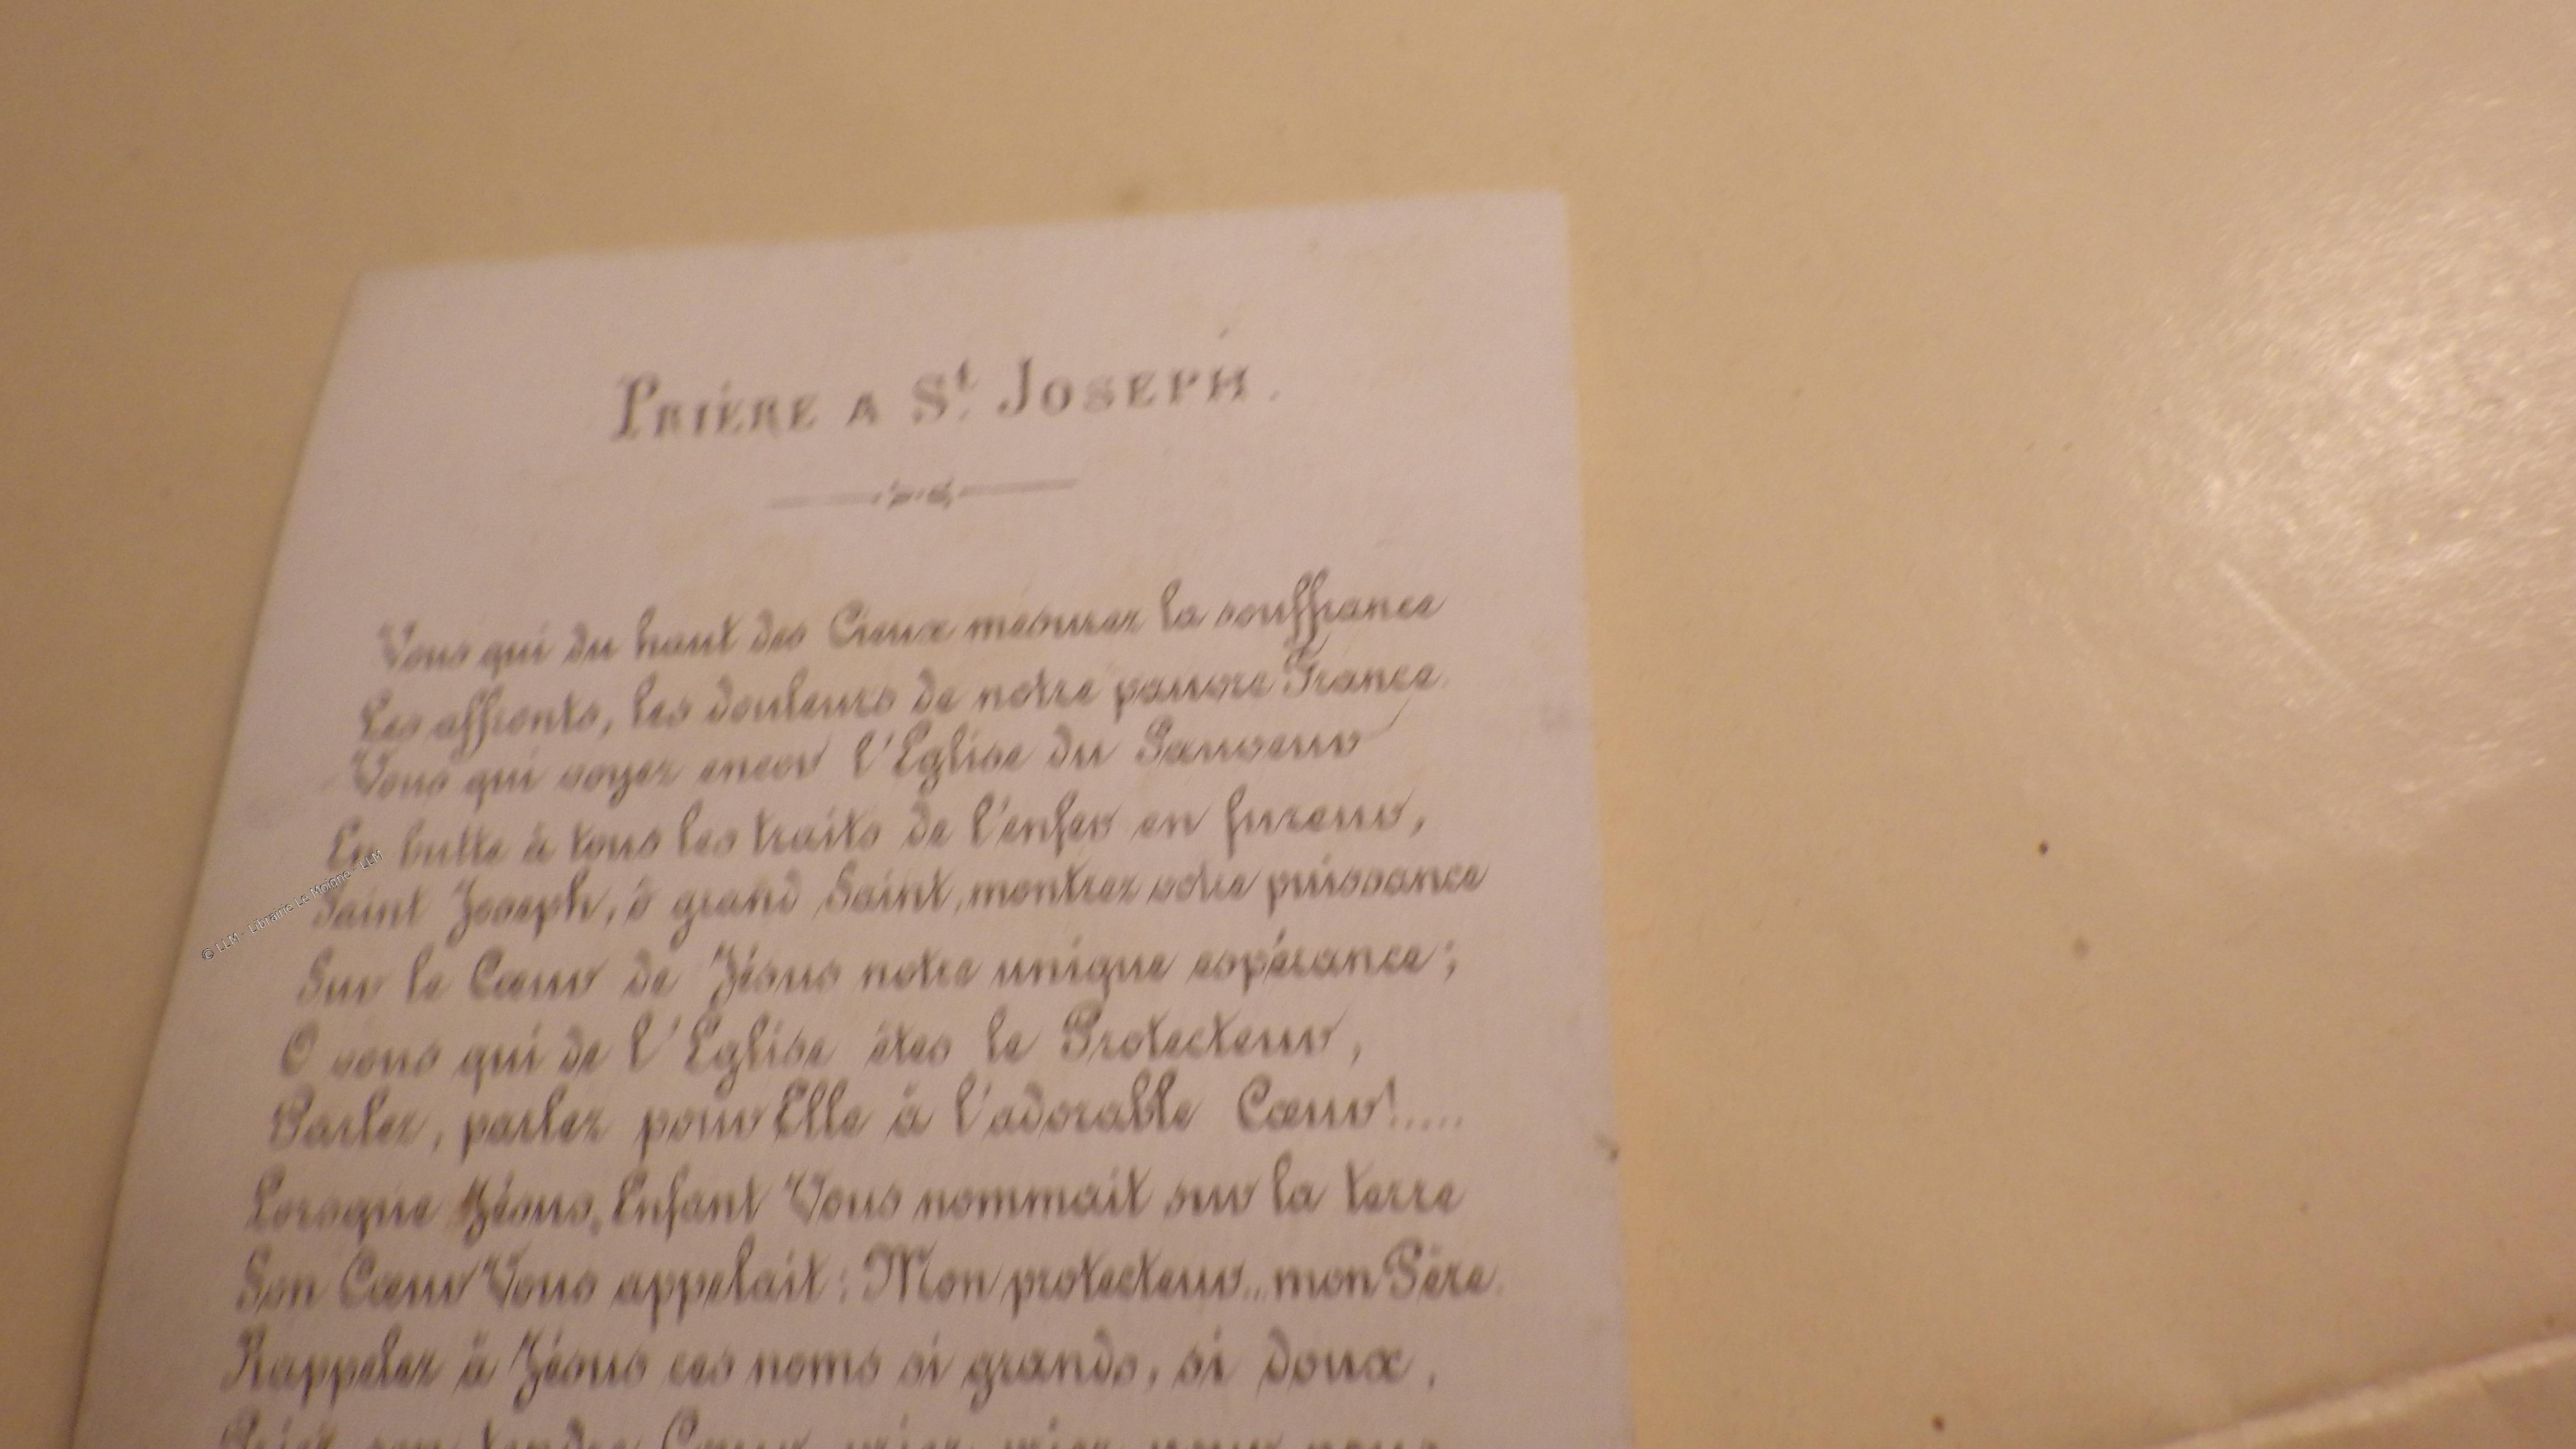 PRIÈRE A St. JOSEPH.
Vous qui du haut des Cieux mesurez la souffrance
Les affronts, les douleurs de notre pauvre France
Vous qui voyez encor l'Eglise du Sauveur
En butte à tous les traits de l'enfer en fureur,
Saint Joseph, ô grand Saint, montrez votre puissance
Sur le Cœur de Jésus notre unique espérance;
O vous qui de l'Eglise êtes le Protecteur,
Parlez, parlez pour Elle à l'adorable Cœur!.....
Lorsque Jésus, Enfant Vous nommait sur la terre
Son Cœur Vous appelait: Mon protecteur... mon Père.
Rappelez à Jésus ces noms si grands, si doux,
Priez son tendre Cœur, priez, priez pour nous
© LLM - Librairie Le Moigne - LLM